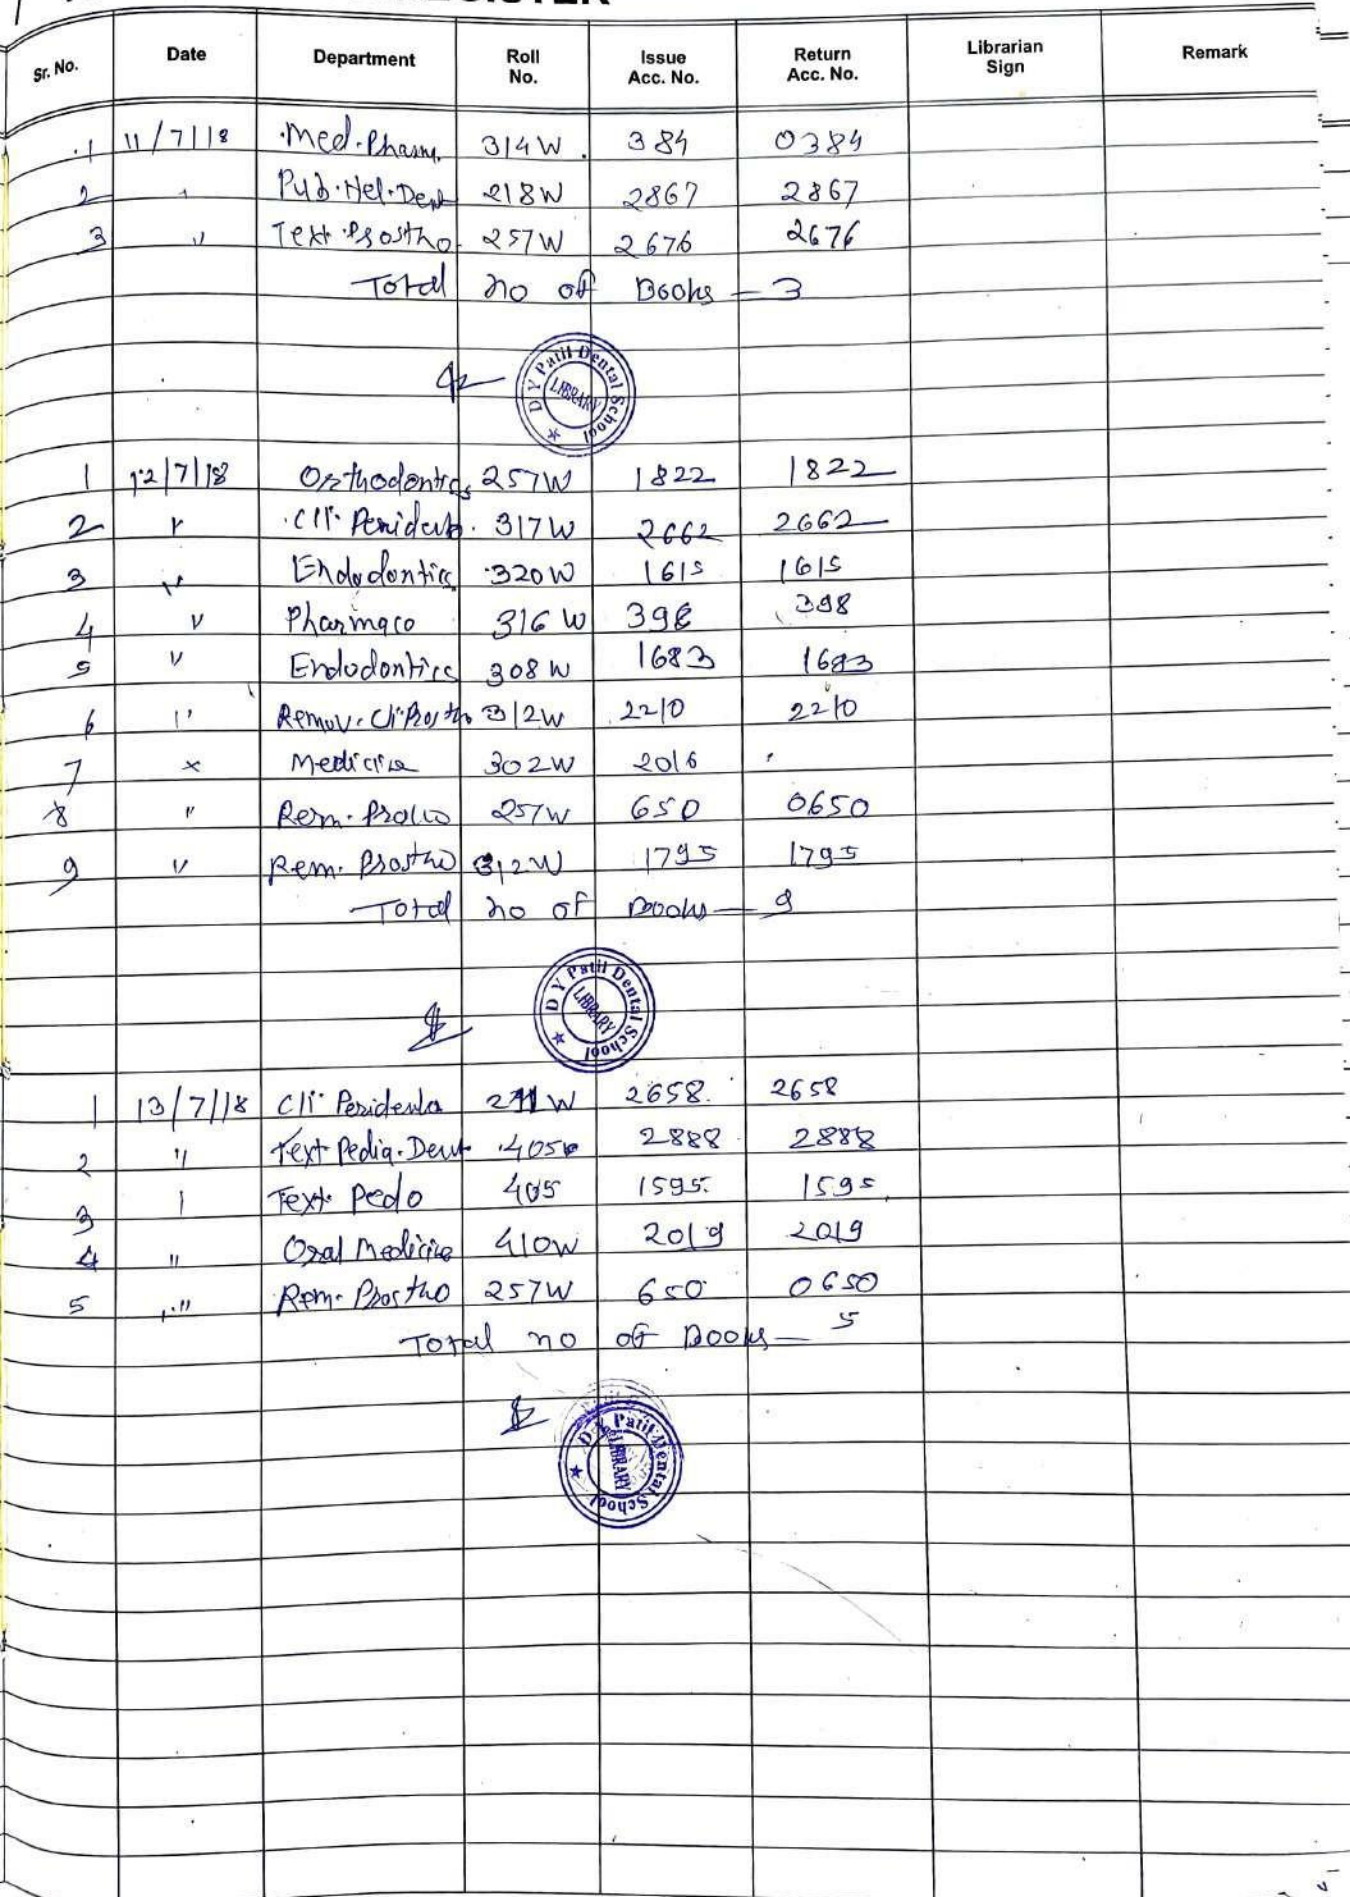 Sr. No. Date Department Roll No. Issue Acc. No. Return Acc. No. Librarian Sign Remark
1 11/7/18 Med. Pharm. 314W 384 0384
2 " Pub. Hel. Dent 218W 2867 2867
3 " Text Prostho 257W 2676 2676
Total no of Books - 3
D Y Patil Dental School LIBRARY
1 12/7/18 Orthodontics 257W 1822 1822
2 " Cli. 317W 2662 2662
3 " Endodontics 320W 1615 1615
4 " Pharmaco 316W 398 398
5 " Endodontics 308W 1683 1683
6 " Remov. Cli Prostho 312W 2210 2210
7 " Medicine 302W 2016
8 " Rem. 257W 650 0650
9 " Rem. Prostho 312W 1795 1795
Total no of Books - 9
D Y Patil Dental School LIBRARY
1 13/7/18 Cli 2658 2658
2 " Text Pedia. Dent 405 2888 2888
3 " Text Pedo 405 1595 1595
4 " Oral Medicine 410W 2019 2019
5 " Rem. Prostho 257W 650 0650
Total no of Books - 5
D Y Patil Dental School LIBRARY